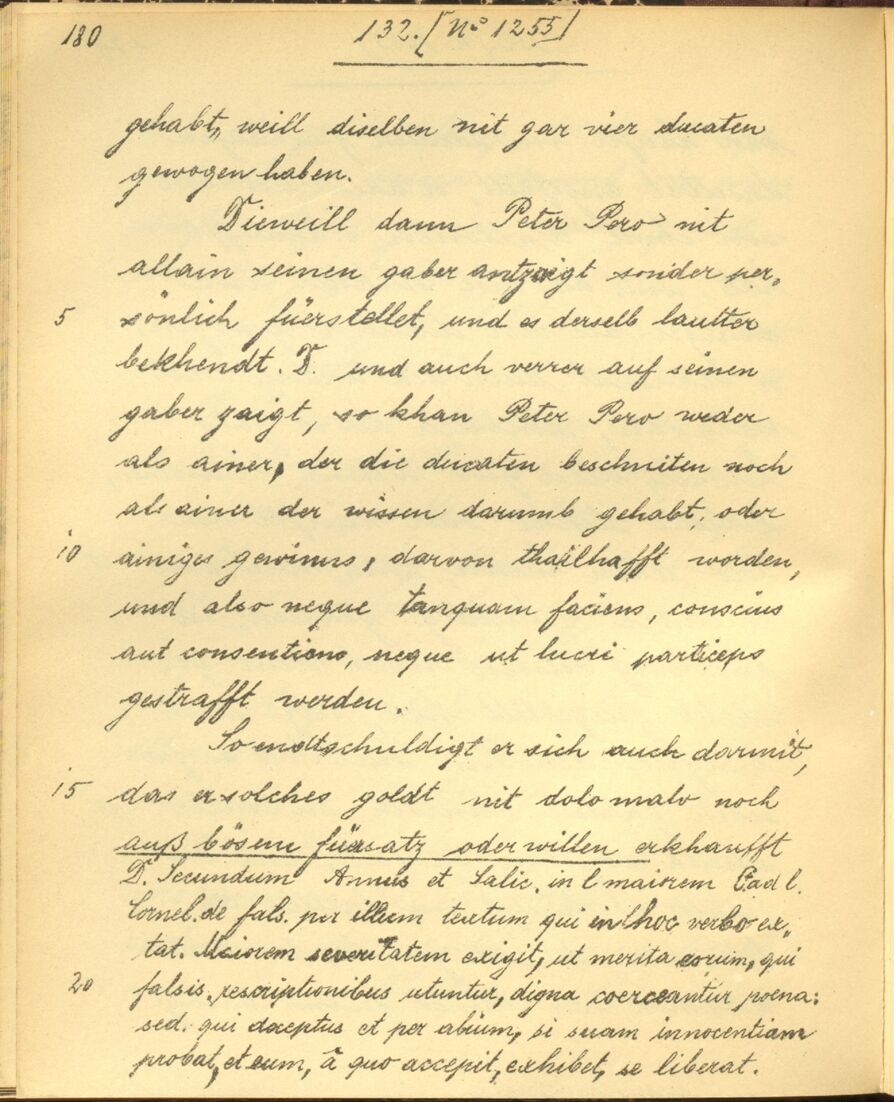 180
132. [No 1255]
gehabt, weill diselben nit gar vier ducaten
gewogen haben.
Dieweill dann Peter Pero nit
allain seinen gaber antzaigt sonder per,
5 sönlich füerstellet, und es derselb lautter
bekhendt. D. und auch verrer auf seinen
gaber zaigt, so khan Peter Pero weder
als ainer, der die ducaten beschniten noch
als ainer der wissen darumb gehabt, oder
10 ainiges gewinns, darvon thailhafft worden,
und also neque tanquam faciens, conscius
aut consentiens, neque ut lucri particeps
gestrafft werden.
So endtschuldigt er sich auch darmit,
15 das er solches goldt nit dolo malo noch
auß bösem füersatz oder willen erkhaufft
D. Secundum Annus et Salic. in l maiorem C ad l.
Cornel. de fals. per illum textum qui in hoc verbo ex,
tat. Maiorem severitatem exigit, ut merita eorum, qui
20 falsis rescriptionibus utuntur, digna coerceantur poena:
sed. qui deceptus et per alium, si suam innocentiam
probat, et eum, â quo accepit, exhibet, se liberat.